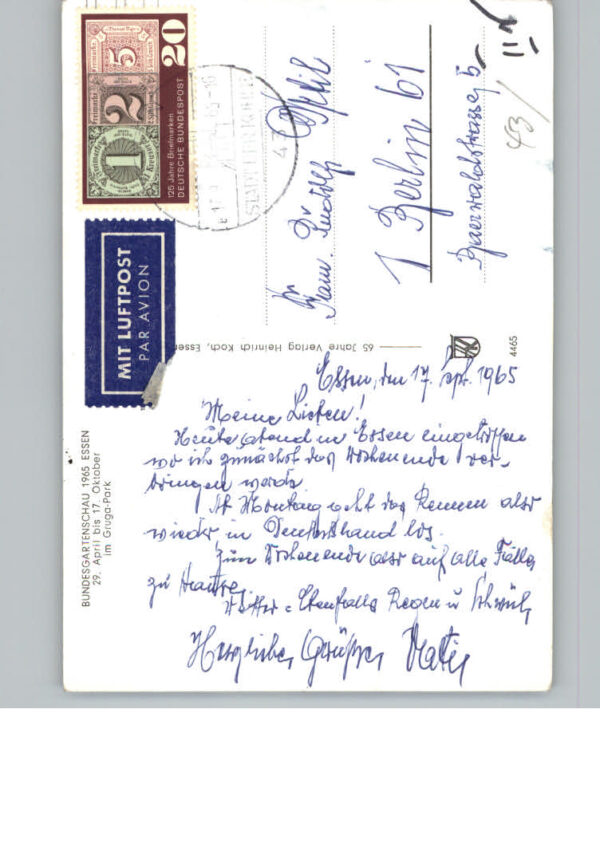 Essen, den 17. Sept. 1965
Meine Lieben!
Heute abend in Essen eingetroffen
wo ich zunächst das Wochenende ver-
bringen werde.
Ab Montag geht das Rennen aber
wieder in Deutschland los.
Zum Wochenende aber auf alle Fälle
zu Hause.
Wetter = Ebenfalls Regen u. Schwül,
Herzliche Grüße Vater
Fam. Rudolf
1 Berlin 61
Baerwaldstrasse 5
43/
20
125 Jahre Briefmarken
DEUTSCHE BUNDESPOST
5
2
1
MIT LUFTPOST
PAR AVION
65 Jahre Verlag Heinrich Koch, Essen
4465
BUNDESGARTENSCHAU 1965 ESSEN
29. April bis 17. Oktober
im Gruga-Park